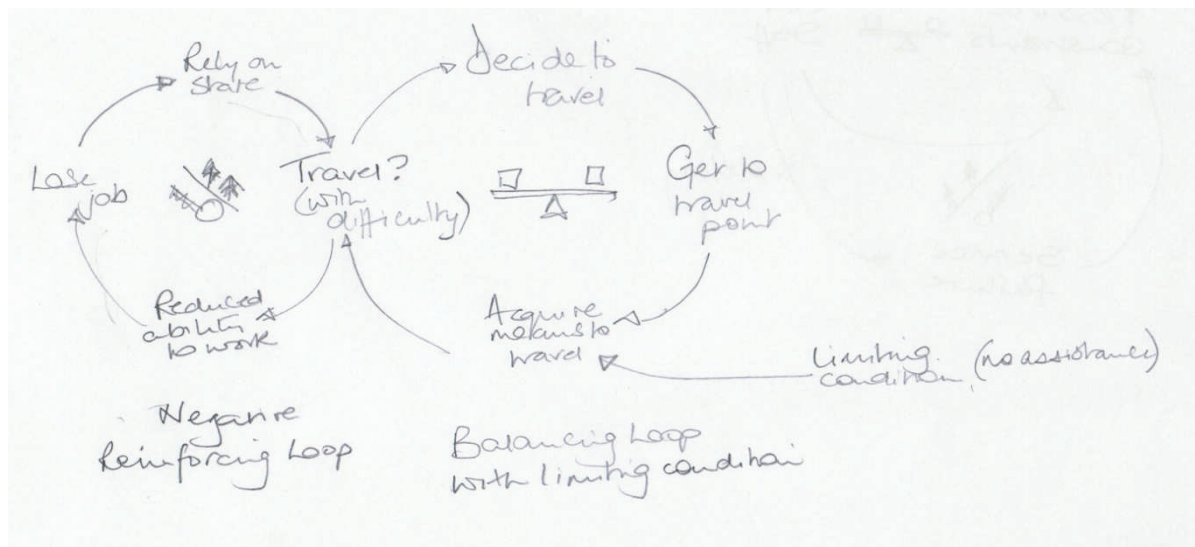 Rely on
state
Decide to
travel
Lose
job
Travel?
(with
difficulty)
Get to
travel
point
Reduced
ability
to work
Acquire
means to
travel
Limiting
condition (no assistance)
Negative
Reinforcing Loop
Balancing Loop
with limiting condition